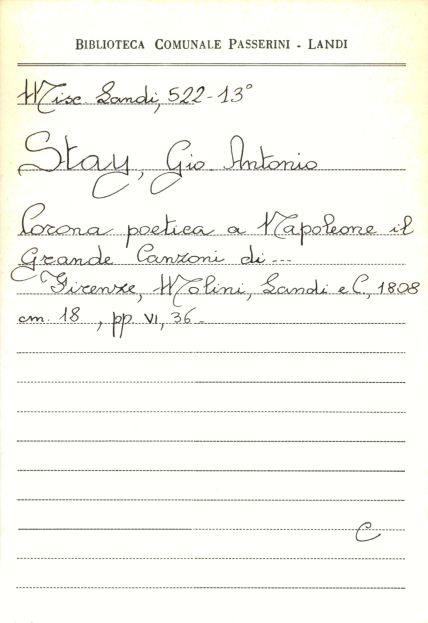 BIBLIOTECA COMUNALE PASSERINI - LANDI
Misc. Landi, 522-13°
Stay, Gio. Antonio
Corona poetica a Napoleone il
Grande Canzoni di...
Firenze, Molini, Landi e C., 1808
cm. 18 , pp. VI, 36.
C